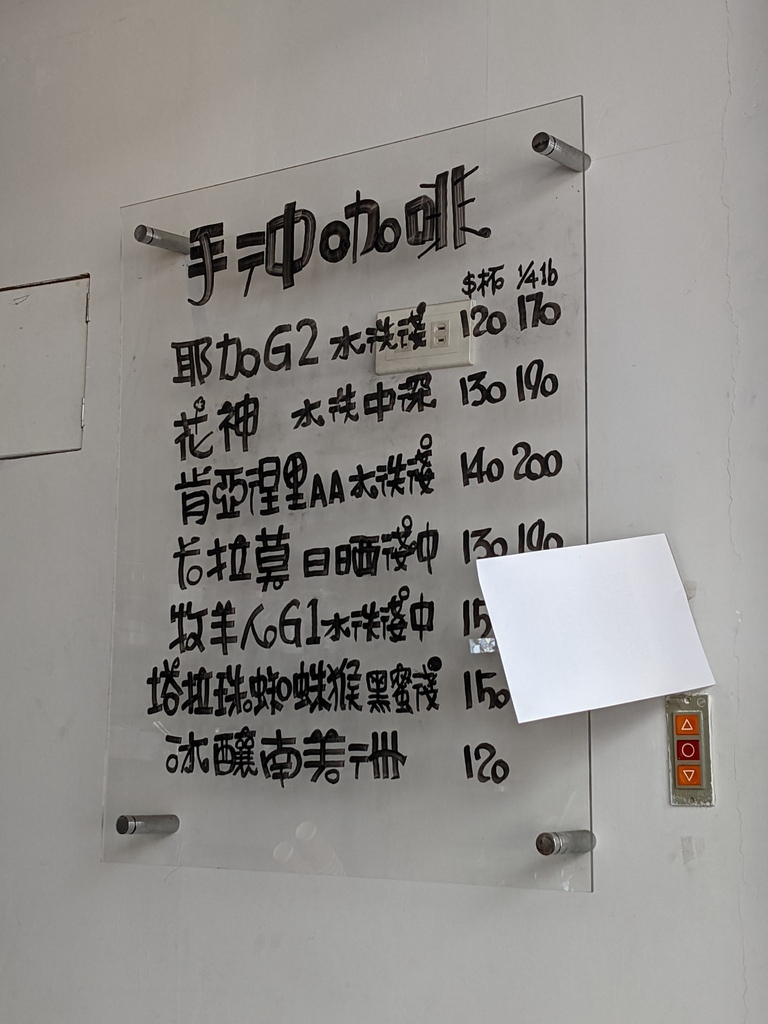 手沖咖啡
$杯 1/4lb
耶加G2 水洗淺 120 170
花神 水洗中深 130 190
肯亞涅里AA水洗淺 140 200
卡拉莫 日晒淺中 130 190
牧羊人G1水洗淺中
塔拉珠蜘蛛猴黑蜜淺 150
冰釀南美洲 120